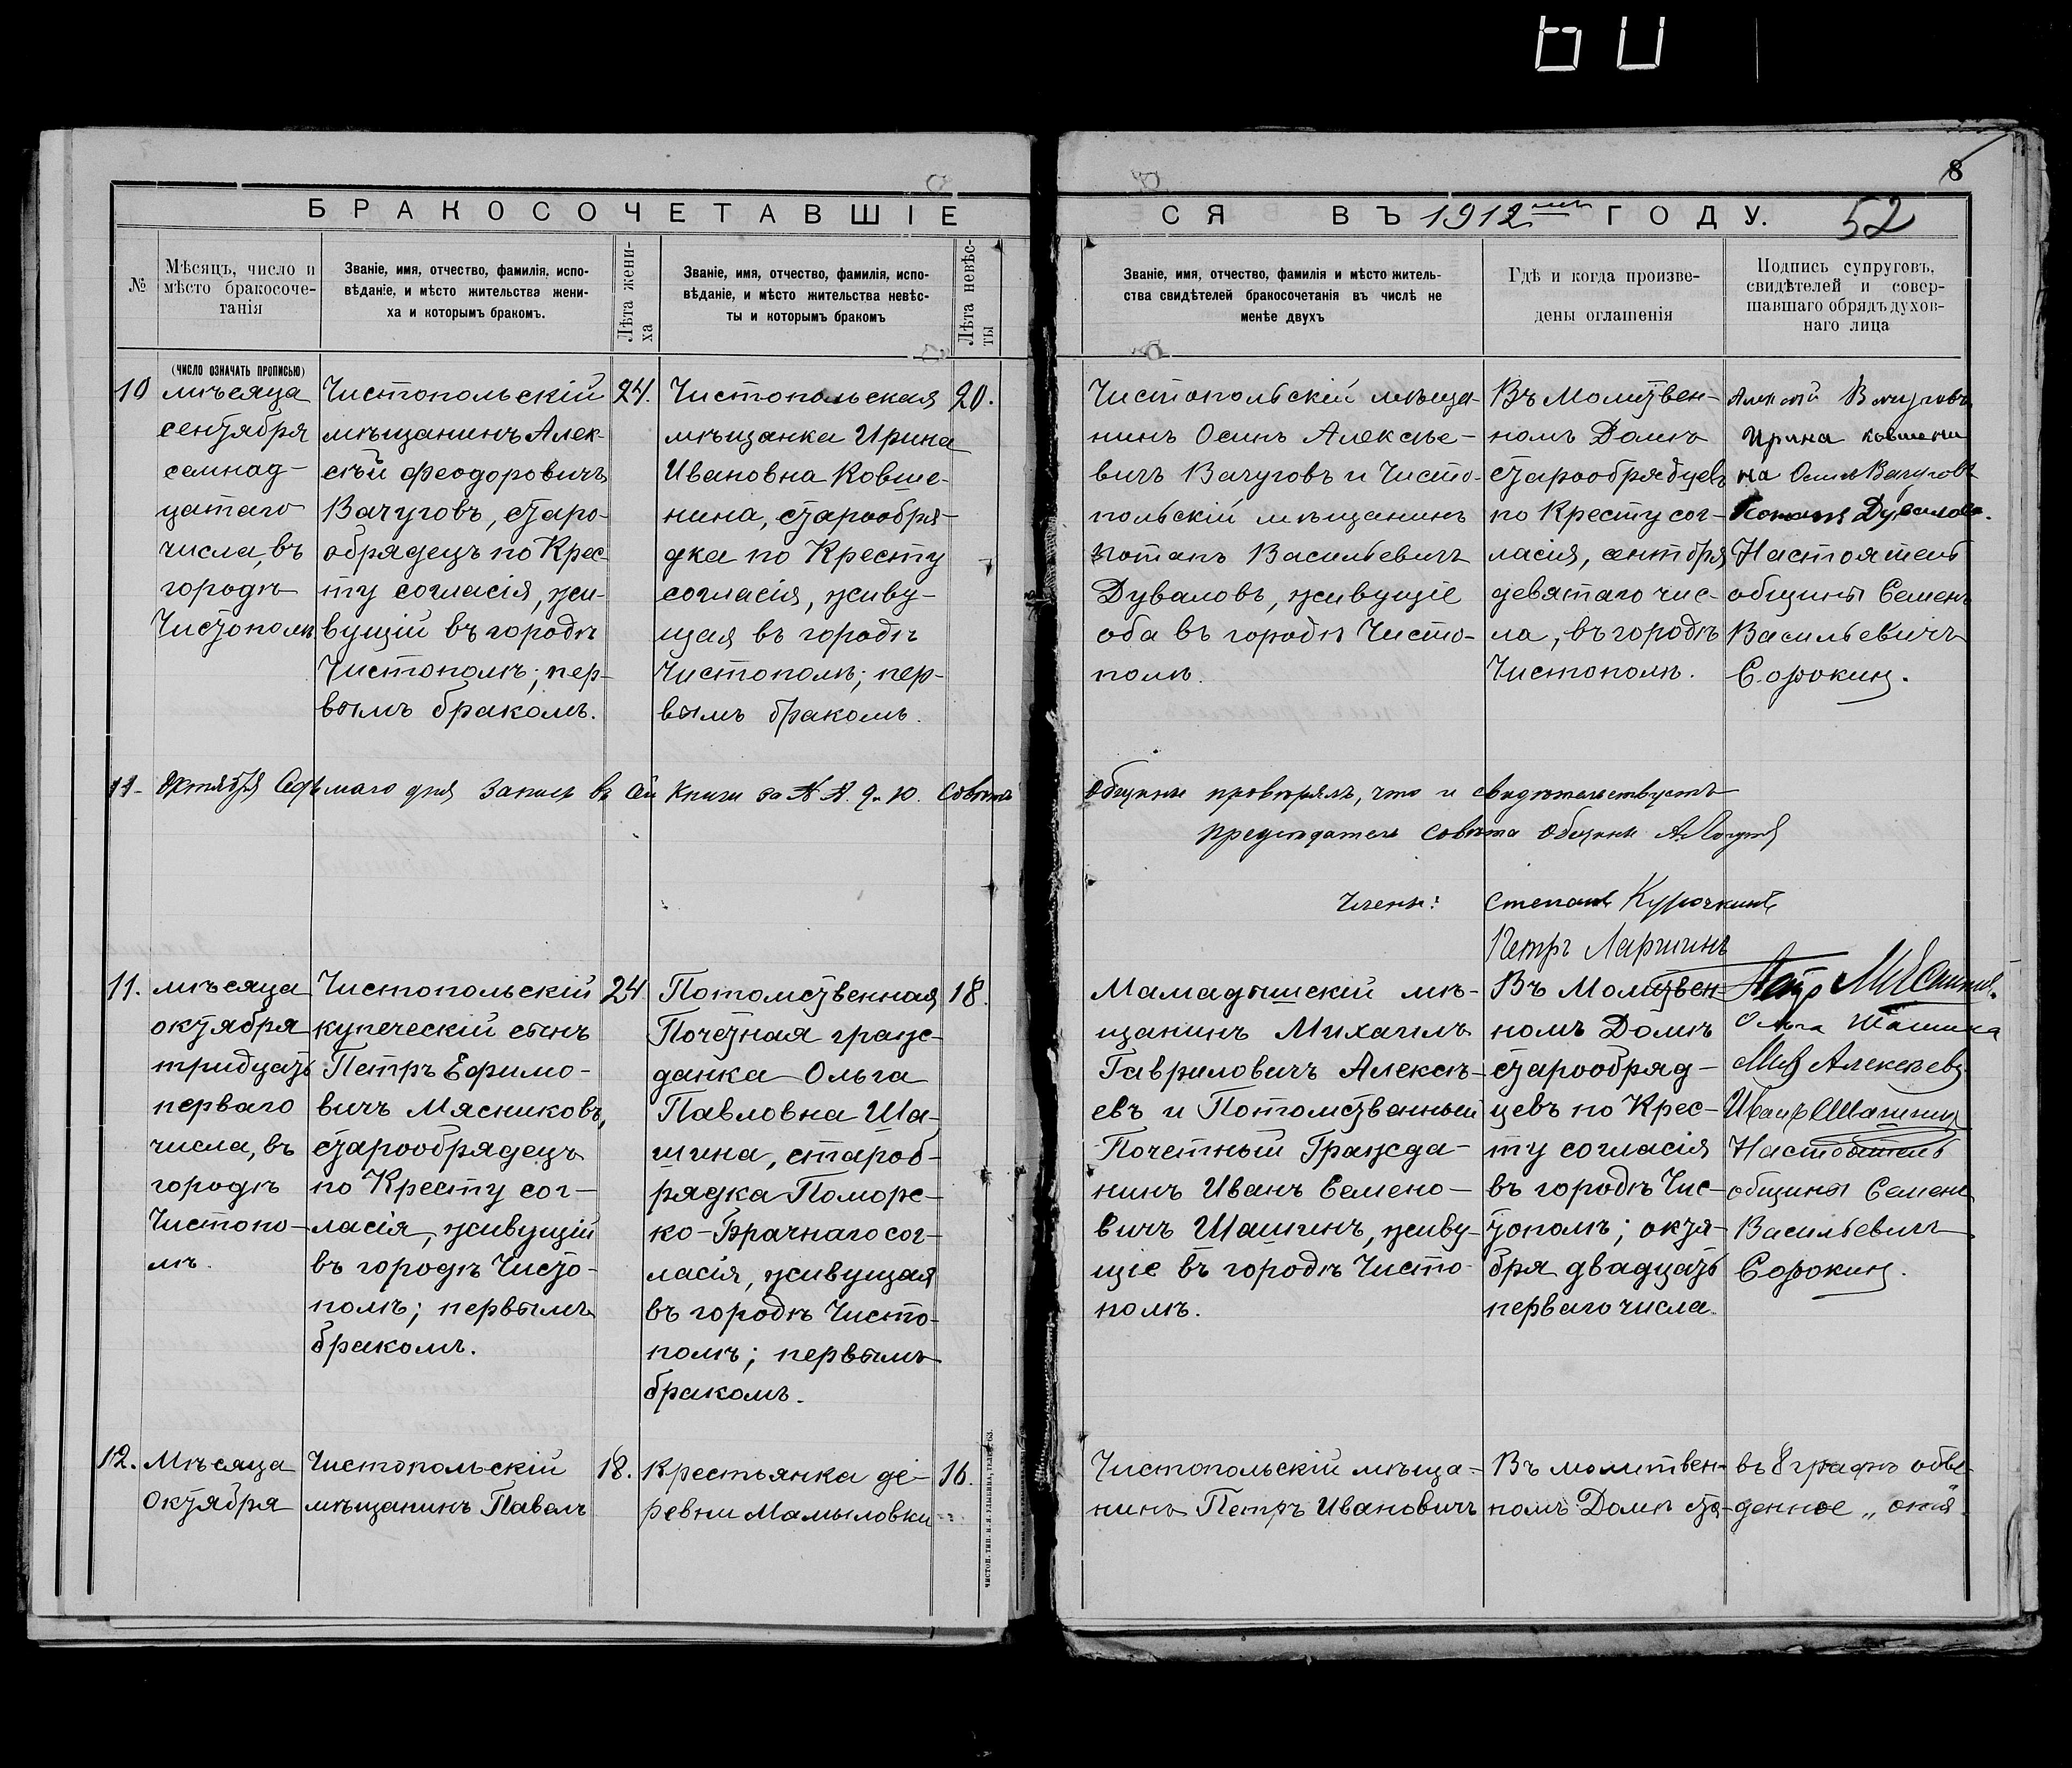 8
БРАКОСОЧЕТАВШІЕ
СЯ ВЪ 1912 ГОДУ.
52
№
Мѣсяцъ, число и
мѣсто бракосоче-
танія
Званіе, имя, отчество, фамилія, испо-
вѣданіе, и мѣсто жительства жени-
ха и которымъ бракомъ.
Лѣта жени-
ха
Званіе, имя, отчество, фамилія, испо-
вѣданіе, и мѣсто жительства невѣс-
ты и которымъ бракомъ
Лѣта невѣс-
ты
Званіе, имя, отчество, фамилія и мѣсто житель-
ства свидѣтелей бракосочетанія въ числѣ не
менѣе двухъ
Гдѣ и когда произве-
дены оглашенія
Подпись супруговъ,
свидѣтелей и совер-
шавшаго обрядъ духов-
наго лица
(число означать прописью)
10
мѣсяца
сентября
семнад-
цатаго
числа, въ
городѣ
Чистополѣ
Чистопольскій
мѣщанинъ Алек-
сѣй Феодоровичъ
Вачуговъ, старо-
обрядецъ по Крес-
ту согласія, жи-
вущій въ городѣ
Чистополѣ; пер-
вымъ бракомъ.
24.
Чистопольская
мѣщанка Ирина
Ивановна Ковше-
нина, старообря-
дка по Кресту
согласія, живу-
щая въ городѣ
Чистополѣ; пер-
вымъ бракомъ.
20.
Чистопольскій мѣща-
нинъ Осипъ Алексѣе-
вичъ Вачуговъ и Чисто-
польскій мѣщанинъ
Потапъ Васильевичъ
Дуваловъ, живущіе
оба въ городѣ Чисто-
полѣ.
Въ Молитвен-
номъ Домѣ
старообрядцевъ
по Кресту сог-
ласія, сентября
девятаго чис-
ла, въ городѣ
Чистополѣ.
Алексѣй Вачуговъ
Ирина Ковшени
на Осипъ Вачуговъ
Потапъ Дуваловъ.
Настоятель
общины Семенъ
Васильевичъ
Сорокинъ.
11-
Октября Седьмаго дня запись въ сей книги за №№ 9 и 10. Совѣтъ
Общины провѣрялъ, что и свидѣтельствуетъ
Предсѣдатель Совѣта Общины
Члены: Степанъ Курочкинъ
Петръ Ларишинъ
11.
мѣсяца
октября
тридцать
перваго
числа, въ
городѣ
Чистопо-
лѣ.
Чистопольскій
купеческій сынъ
Петръ Ефимо-
вичъ Мясниковъ,
старообрядецъ
по Кресту сог-
ласія, живущій
въ городѣ Чисто-
полѣ; первымъ
бракомъ.
24.
Потомственная
Почетная граж-
данка Ольга
Павловна Ша-
шина, староб-
рядка Поморс-
ко-Брачнаго сог-
ласія, живущая
въ городѣ Чисто-
полѣ; первымъ
бракомъ.
18.
Мамадышскій мѣ-
щанинъ Михаилъ
Гавриловичъ Алексѣ-
евъ и Потомственный
Почетный Гражда-
нинъ Иванъ Семено-
вичъ Шашинъ, живу-
щіе въ городѣ Чисто-
полѣ.
Въ Молитвен-
номъ Домѣ
старообряд-
цевъ по Крес-
ту согласія
въ городѣ Чис-
тополѣ; октя-
бря двадцать
перваго числа.
Петръ Мясниковъ.
Ольга Шашина
Мих Алексѣевъ
Иванъ Шашинъ
Настоятель
общины Семенъ
Васильевичъ
Сорокинъ.
12.
Мѣсяца
Октября
Чистопольскій
мѣщанинъ Павелъ
18.
Крестьянка де-
ревни Мамыловки
16.
Чистопольскій мѣща-
нинъ Петръ Ивановичъ
Въ молитвен-
номъ Домѣ ста-
въ 8 графѣ обве-
денное